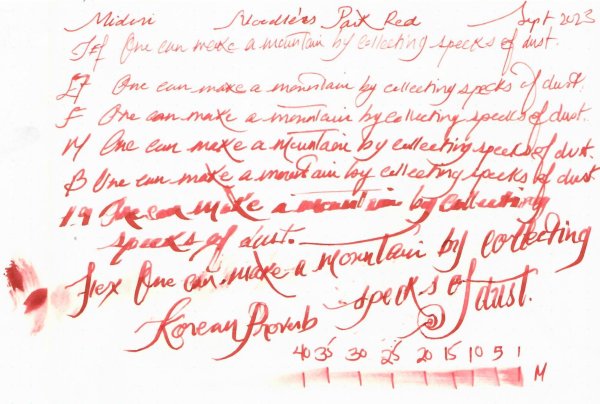 Midori Noodlers Park Red Sept 2023
Jef One can make a mountain by collecting specks of dust.
EF One can make a mountain by collecting specks of dust.
F One can make a mountain by collecting specks of dust.
M One can make a mountain by collecting specks of dust.
B One can make a mountain by collecting specks of dust.
1.9 One can make a mountain by collecting
specks of dust.
flex One can make a mountain by collecting
specks of dust.
Korean Proverb
40 35 30 25 20 15 10 5 1
M